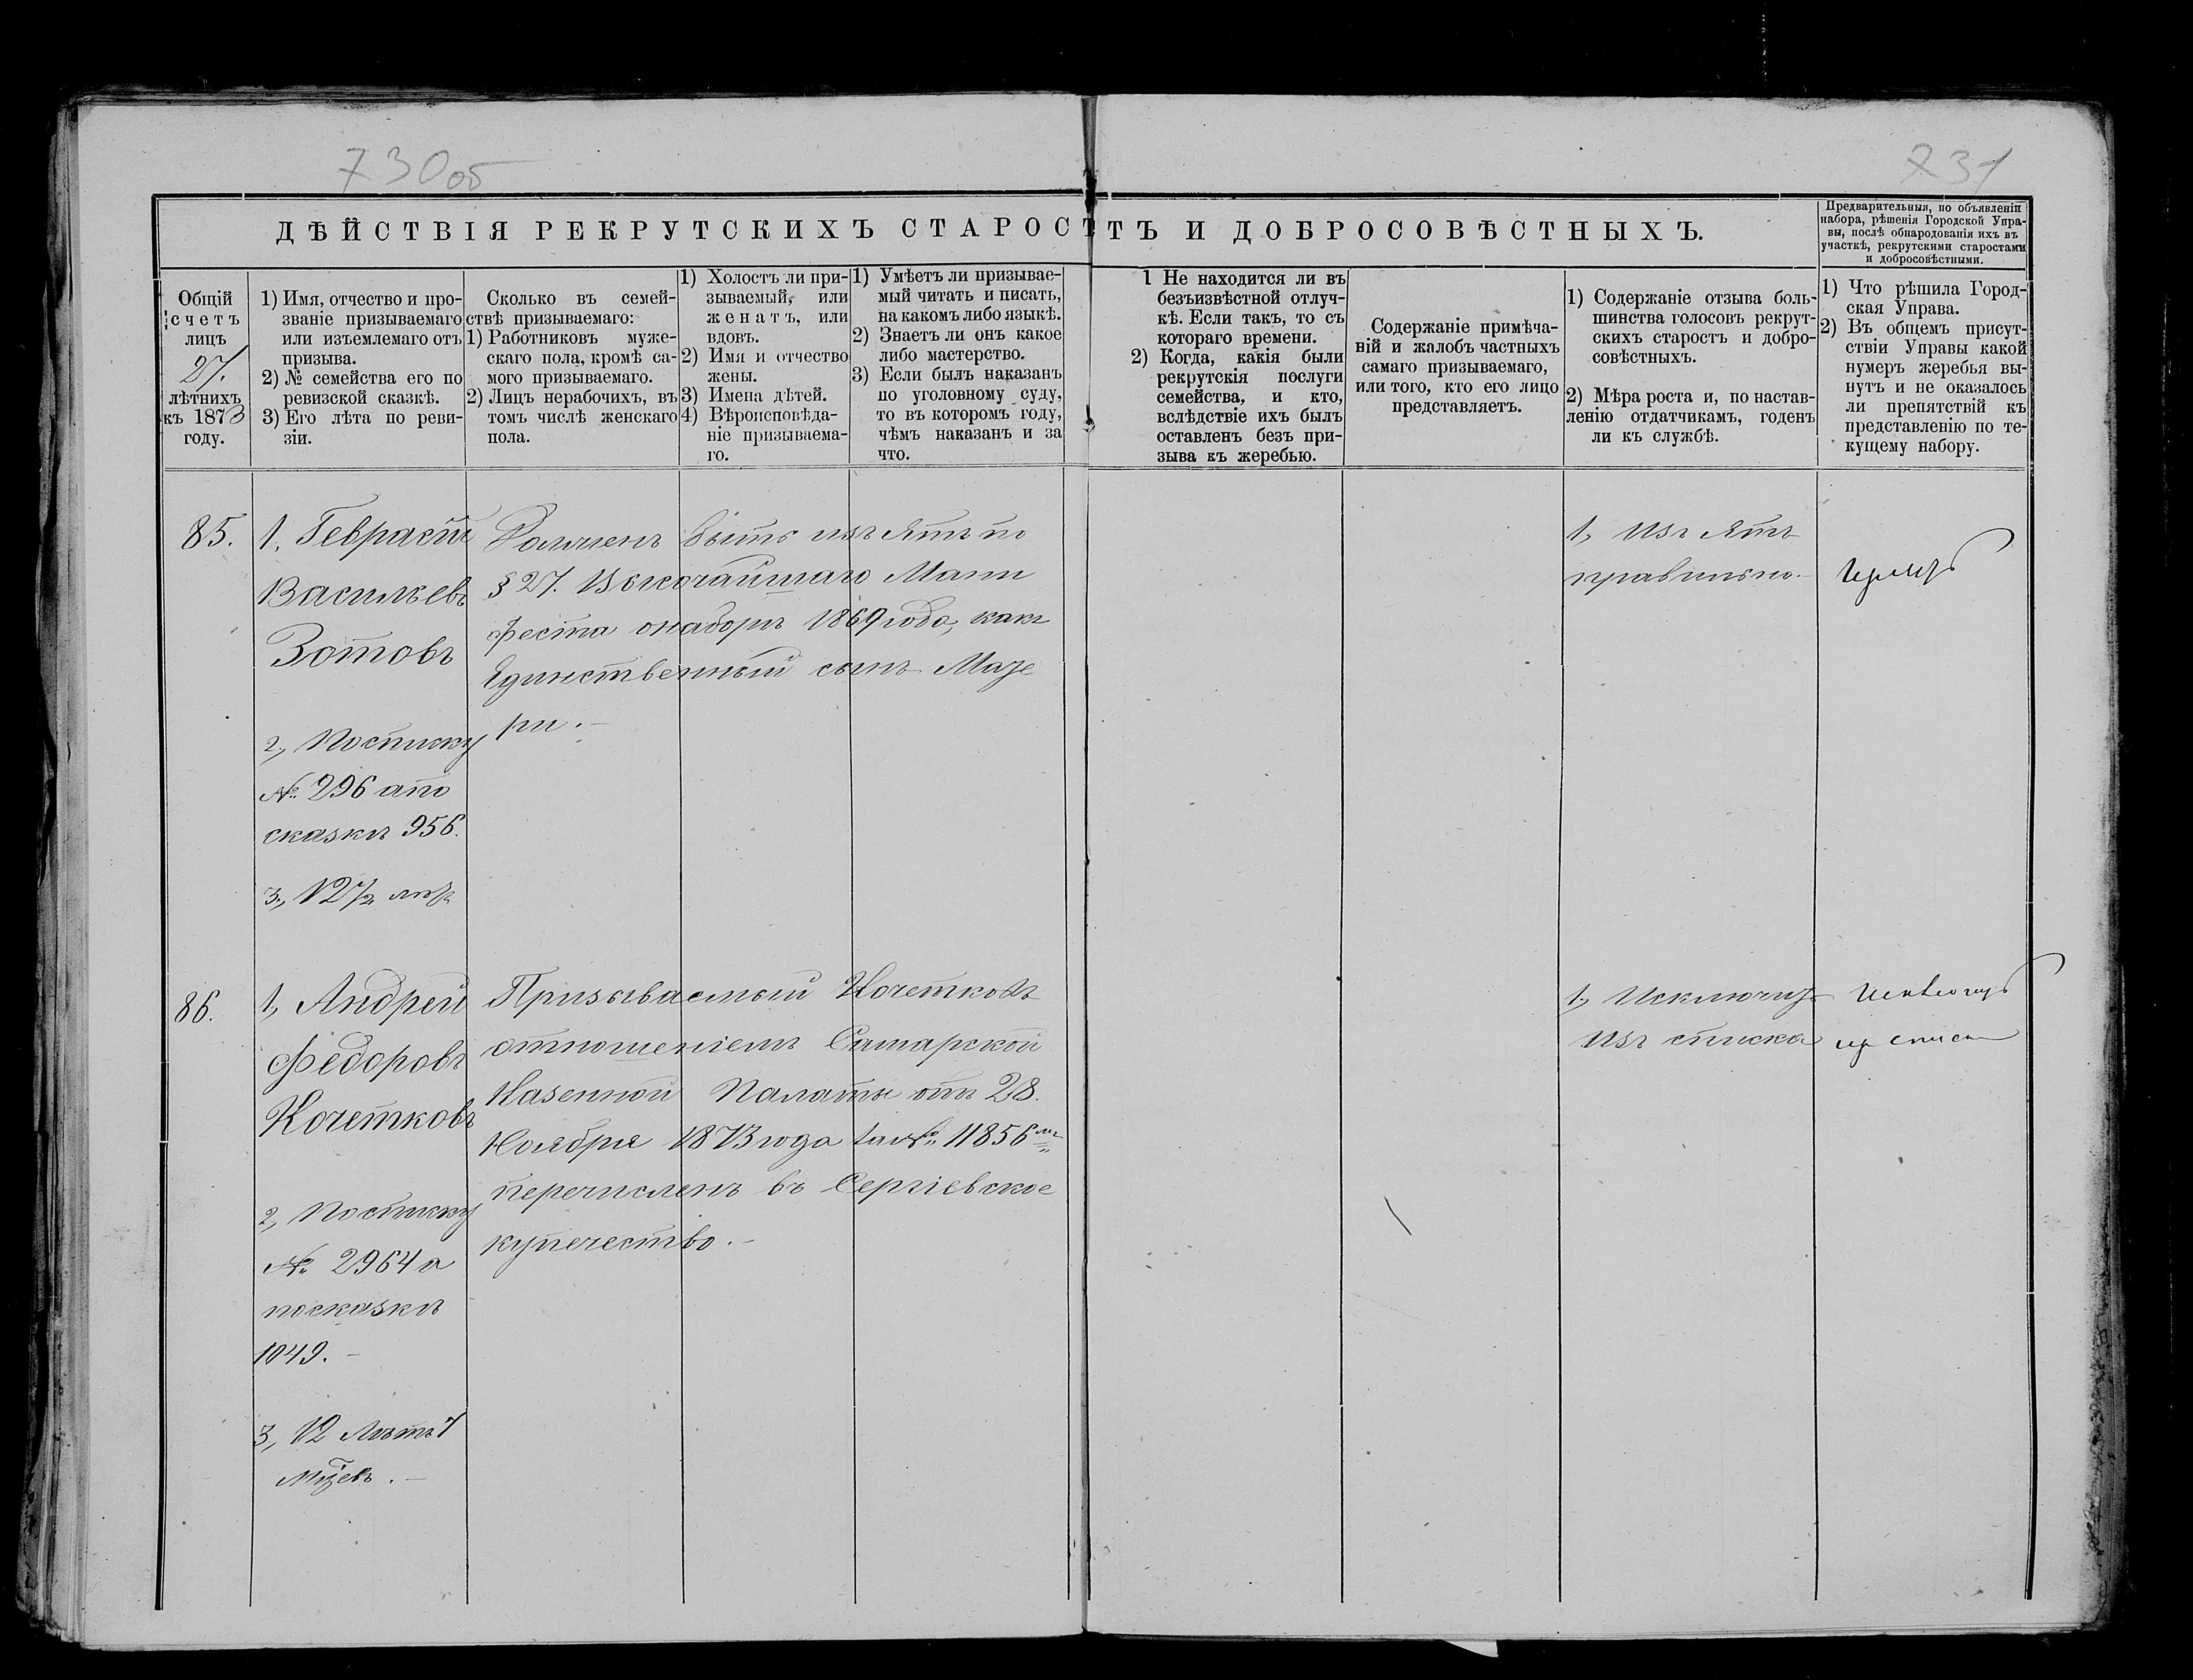 730об
731
ДѢЙСТВІЯ РЕКРУТСКИХЪ СТАРОСТЪ И ДОБРОСОВѢСТНЫХЪ.
Предварительныя, по объявленіи
набора, рѣшенія Городской Упра-
вы, послѣ обнародованія ихъ въ
участкѣ, рекрутскими старостами
и добросовѣстными.
Общій
счетъ
лицъ
27.
лѣтнихъ
къ 1873
году.
1) Имя, отчество и про-
званіе призываемаго
или изъемлемаго отъ
призыва.
2) № семейства его по
ревизской сказкѣ.
3) Его лѣта по реви-
зіи.
Сколько въ семей-
ствѣ призываемаго:
1) Работниковъ муже-
скаго пола, кромѣ са-
мого призываемаго.
2) Лицъ нерабочихъ, въ
томъ числѣ женскаго
пола.
1) Холостъ ли при-
зываемый, или
женатъ, или
вдовъ.
2) Имя и отчество
жены.
3) Имена дѣтей.
4) Вѣроисповѣда-
ніе призываема-
го.
1) Умѣетъ ли призывае-
мый читать и писать,
на какомъ либо языкѣ.
2) Знаетъ ли онъ какое
либо мастерство.
3) Если былъ наказанъ
по уголовному суду,
то въ которомъ году,
чѣмъ наказанъ и за
что.
1 Не находится ли въ
безъизвѣстной отлуч-
кѣ. Если такъ, то съ
котораго времени.
2) Когда, какія были
рекрутскія послуги
семейства, и кто,
вслѣдствіе ихъ былъ
оставленъ безъ при-
зыва къ жеребью.
Содержаніе примѣча-
ній и жалобъ частныхъ
самаго призываемаго,
или того, кто его лицо
представляетъ.
1) Содержаніе отзыва боль-
шинства голосовъ рекрут-
скихъ старостъ и добро-
совѣстныхъ.
2) Мѣра роста и, по настав-
ленію отдатчикамъ, годенъ
ли къ службѣ.
1) Что рѣшила Город-
ская Управа.
2) Въ общемъ присут-
ствіи Управы какой
нумеръ жеребья вы-
нутъ и не оказалось
ли препятствій къ
представленію по те-
кущему набору.
85.
1, Геврасій
Васильевъ
Зотовъ
2, Посписку
№ 296 апо
сказкѣ 956.
3, 12½ лѣтъ
Долженъ быть изъятъ по
§ 27. Высочайшаго Мани
феста онаборѣ 1869 года, какъ
Единственный сынъ Мате
ри.
1, Изъятъ
правильно.
86.
1, Андрей
Федоровъ
Кочетковъ
2, Посписку
№ 2964 а
посказкѣ
1049.
3, 12 Лѣтъ 1
Мцевъ.
Призываемый Кочетковъ
отношеніемъ Самарской
Казенной Палаты отъ 28.
Ноября 1873 года за № 11856мъ
перечисленъ въ Сергіевское
купечество.
1, Исключить
изъ списка
Исключить
из списка